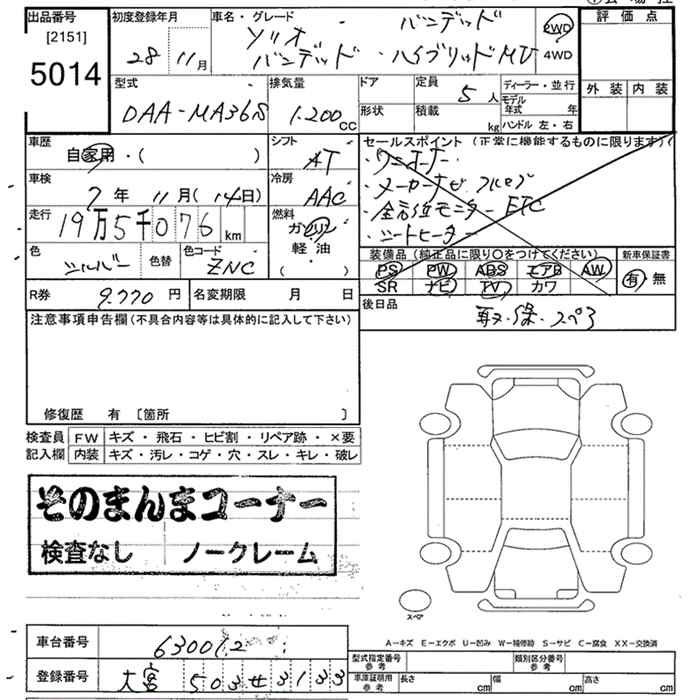 出品番号 [2151]
5014
初度登録年月 28 11月
車名・グレード ソリオ バンデッド
バンデッド・ハイブリッドMV
2WD
4WD
評価点
外装 内装
型式 DAA-MA36S
排気量 1.200cc
ドア
形状
定員 5人
積載 kg
ディーラー・並行
モデル年式 年
ハンドル 左・右
車歴 自家用・( )
シフト AT
車検 7年 11月(14日)
冷房 AAC
走行 19万5千076km
燃料 ガソリン
軽油
( )
色 シルバー 色替
色コード ZNC
R券 9.770円
名変期限 月 日
セールスポイント(正常に機能するものに限ります)
・ワンオーナー
・メーカーナビ フルセグ
・全方位モニター ETC
・シートヒーター
装備品(純正品に限り○をつけてください)
PS PW ABS エアB AW
SR ナビ TV カワ
新車保証書
有・無
後日品 取・保・スペア
注意事項申告欄(不具合内容等は具体的に記入して下さい)
修復歴 有 [箇所 ]
検査員 FW キズ・飛石・ヒビ割・リペア跡・×要
記入欄 内装 キズ・汚レ・コゲ・穴・スレ・キレ・破レ
そのまんまコーナー
検査なし ノークレーム
スペア
A-キズ E-エクボ U-凹み W-補修跡 S-サビ C-腐食 XX-交換済
車台番号 630012
登録番号 大宮 503 せ 3133
型式指定番号 参考
類別区分番号 参考
車庫証明用 参考 長さ cm 幅 cm 高さ cm